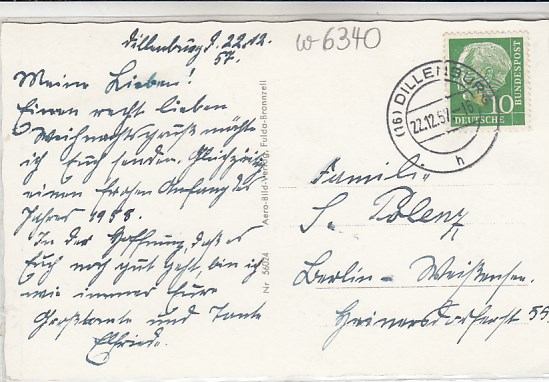 Dillenburg d. 22.12.
57.
w-6340
Meine Lieben!
Einen recht lieben
Weihnachtsgruß möchte
ich Euch senden. Gleichzeitig
einen frohen Anfang des
Jahres 1958.
In der Hoffnung, daß es
Euch noch gut geht, bin ich
wie immer Eure
Großtante und Tante
Elfriede.
Nr 56024 Aero-Bild-Verlag, Fulda-Bronnzell
(16) DILLENBURG
22.12.57
h
10
DEUTSCHE
BUNDESPOST
Familie
S. Polenz
Berlin-Weißensee.
Heinersdorferst 55